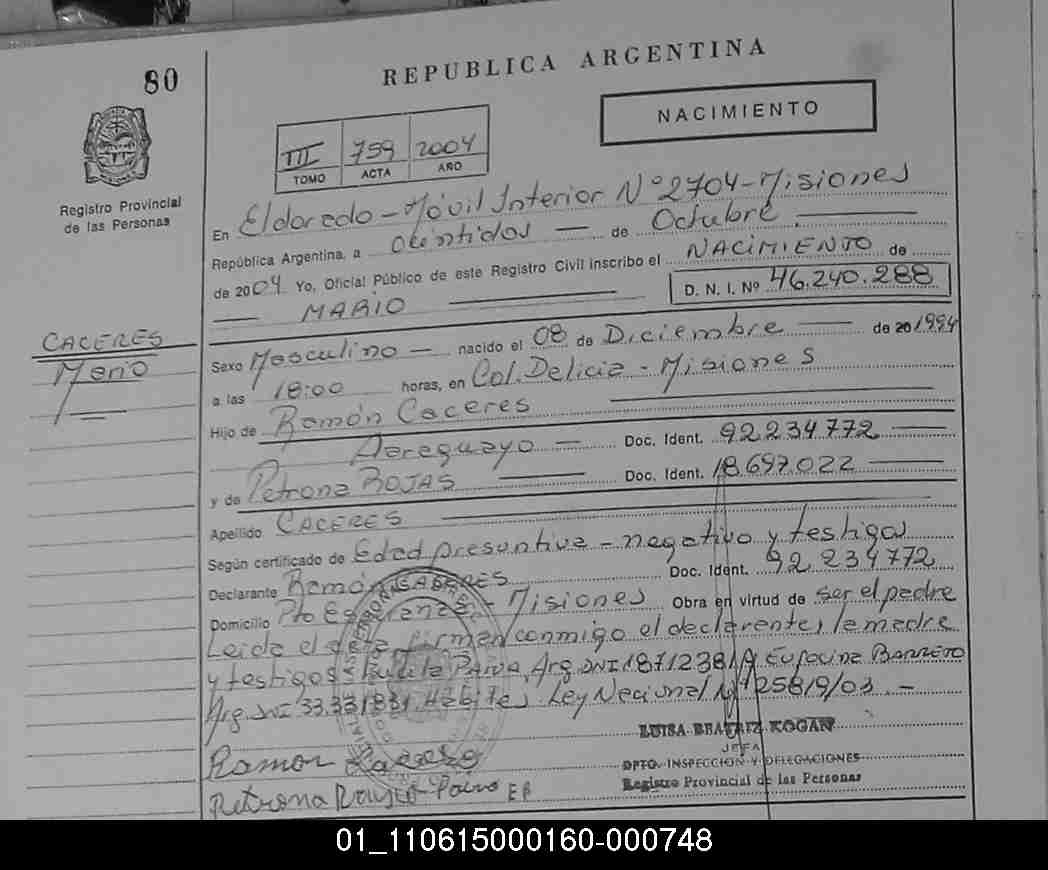 80
REPUBLICA ARGENTINA
NACIMIENTO
III 759 2004
TOMO ACTA AÑO
Registro Provincial
de las Personas
En Eldorado - Móvil Interior Nº 2704 - Misiones
República Argentina, a veintidos — de Octubre
de 2004 Yo, Oficial Público de este Registro Civil inscribo el NACIMIENTO de
MARIO D. N. I. Nº 46.240.288
CACERES
Mario
Sexo Masculino — nacido el 08 de Diciembre — de 20 1994
a las 18:00 horas, en Col. Delicia - Misiones
Hijo de Ramón Caceres
Paraguayo — Doc. Ident. 92 234 772
y de Petrona ROJAS Doc. Ident. 18.697.022
Apellido CACERES
Según certificado de Edad presuntiva - negativo y testigos
Declarante Ramón CACERES Doc. Ident. 92 234 772
Domicilio Pto Esperanza - Misiones Obra en virtud de ser el padre
Leida el acta firman conmigo el declarante, la madre
y testigos Paiva, Arg. DNI Eufacina BARRETO
Arg. DNI Ley Nacional Nº 25819/03. -
LUISA BEATRIZ KOGAN
JEFA
DPTO. INSPECCION Y DELEGACIONES
Registro Provincial de las Personas
Ramon Caceres
Petrona Paiva EB
01_110615000160-000748